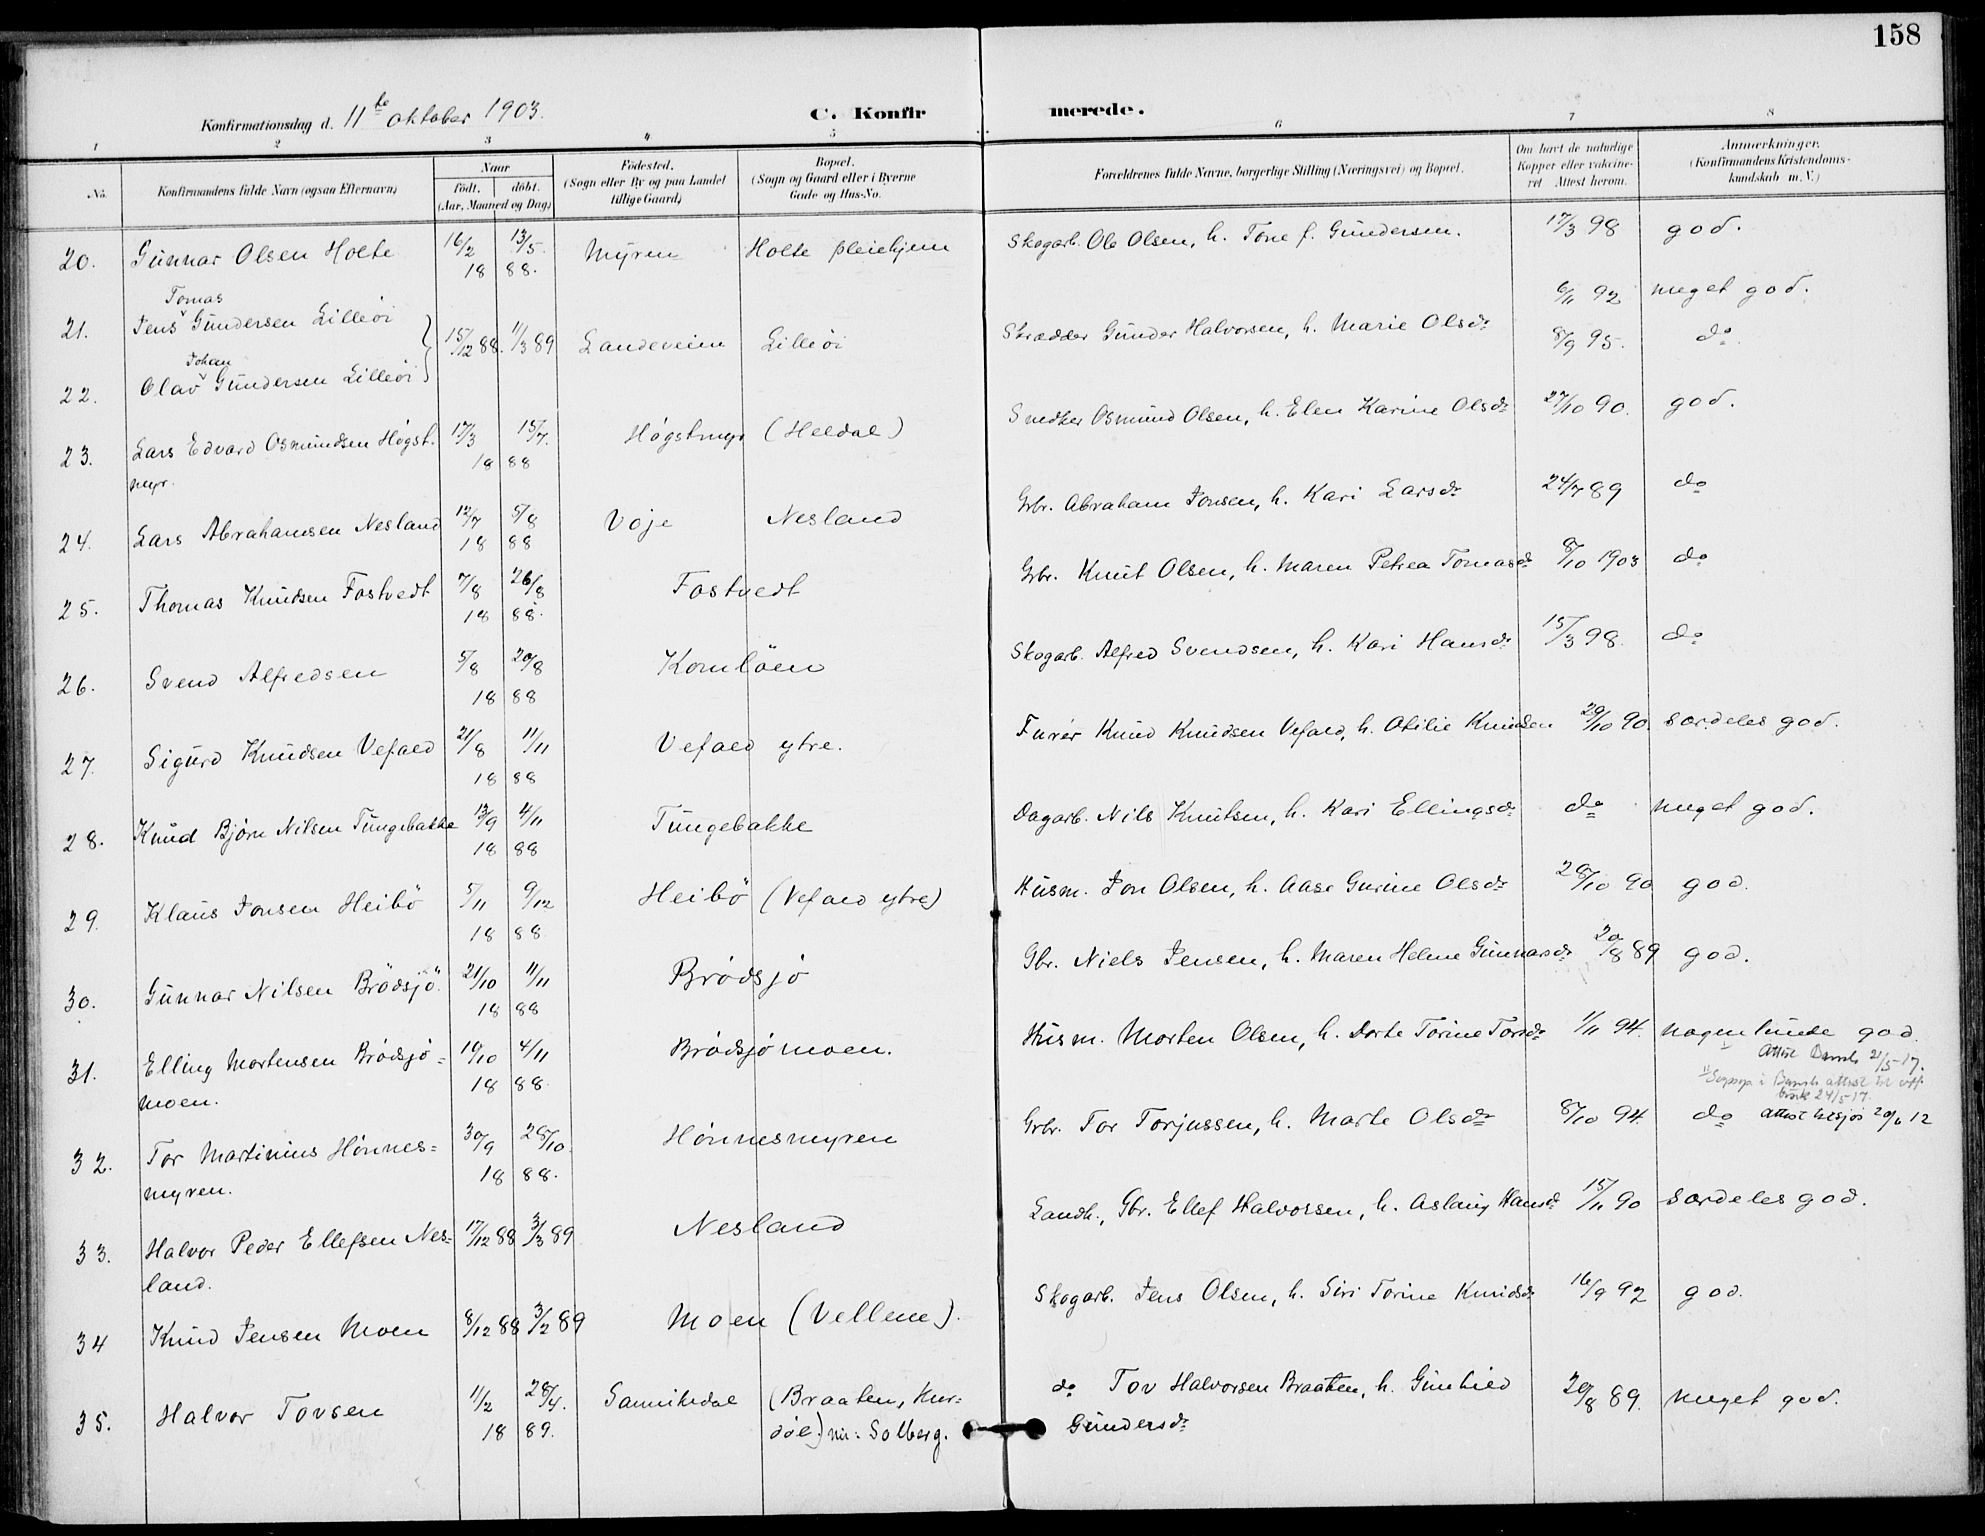 158
Konfirmationsdag d. 11te oktober 1903.
C. Konfirmerede.
1 2 3 4 5 6 7 8
No.
Konfirmandens fulde Navn (ogsaa Efternavn)
Naar
født. døbt.
(Aar, Maaned og Dag)
Fødested.
(Sogn eller By og paa Landet
tillige Gaard)
Bopæl.
(Sogn og Gaard eller i Byerne
Gade og Hus-No.
Forældrenes fulde Navne, borgerlige Stilling (Næringsvei) og Bopæl.
Om havt de naturlige
Kopper eller vakcine-
ret Attest herom.
Anmerkninger.
(Konfirmandens Kristendoms-
kundskab m. V.)
20. Gunnar Olsen Holte 16/2 13/5 Myren Holte pleiehjem Skogarb. Ole Olsen, h. Tone f. Gundersen. 17/3 98 god.
18 88.
Tomas
21. Jens Gundersen Lilleöi 15/12 88. 1/3 89 Landeveien Lilleöi Skrædder Gunder Halvorsen, h. Marie Olsdr 6/11 92 meget god.
Johan
22. Olav Gundersen Lilleöi 8/9 95. do
23. Lars Edvard Osmundsen Høgst. 17/3 15/7. Høgstmyr (Heldal) Snedker Osmund Olsen, h. Elen Karine Olsdr 27/10 90. god.
myr. 18 88
24. Lars Abrahamsen Nesland 12/7 5/8 Voje Nesland Grbr. Abraham Jonsen, h. Kari Larsdr 24/7 89 do
18 88
25. Thomas Knudsen Fostvedt 7/8 26/8 Fostvedt Grbr. Knut Olsen, h. Maren Petrea Tomasdr 8/10 1903 do
18 88.
26. Svend Alfredsen 5/8 20/8 Komlöen Skogarb. Alfred Svendsen, h. Kari Hansdr 15/3 98. do
18 88
27. Sigurd Knudsen Vefald 21/8 11/11 Vefald ytre. Furér Knud Knudsen Vefald, h. Otilie Knudsen 29/10 90. særdeles god.
18 88
28. Knud Bjørn Nilsen Tungebakke 13/9 4/11 Tungebakke Dagarb. Nils Knutsen, h. Kari Ellingsdr do meget god.
18 88
29. Klaus Jonsen Heibö 5/11 9/12 Heibö (Vefald ytre) Husm. Jon Olsen, h. Aase Gurine Olsdr 28/10 90 god.
18 88
30. Gunnar Nilsen Brödsjö. 21/10 11/11 Brödsjö Gbr. Niels Jensen, h. Maren Helene Gunnarsdr 20/8 89 god.
18 88
31. Elling Mortensen Brödsjö= 10/10 4/11 Brödsjömoen. Husm. Morten Olsen, h. Dorte Torine Torsdr 1/11 94. nogenlunde god.
moen. 18 88. Attst Bamb 21/5-17.
24/5 17.
32. Tor Martinius Hönnes= 30/9 28/10. Hönnesmyren Grbr. Tor Torjussen, h. Marte Olsdr 8/10 94. do
myren. 18 88.
33. Halvor Peder Ellefsen Nes= 17/12 88 3/3 89 Nesland Landh., Gbr. Ellef Halvorsen, h. Aslaug Hansdr 15/11 90 særdeles god.
land.
34 Knud Jensen Moen 8/12 88 3/2 89 Moen (Vellene). Skogarb. Jens Olsen, h. Siri Torine Knudsdr 16/9 92 god.
35. Halvor Tovsen 1/2 28/4. Sannikedal (Braaten, Kur= do Tov Halvorsen Braaten, h. Gunhild 20/8 89. meget god.
18 89. döl) nu: Solberg. Gundersdr